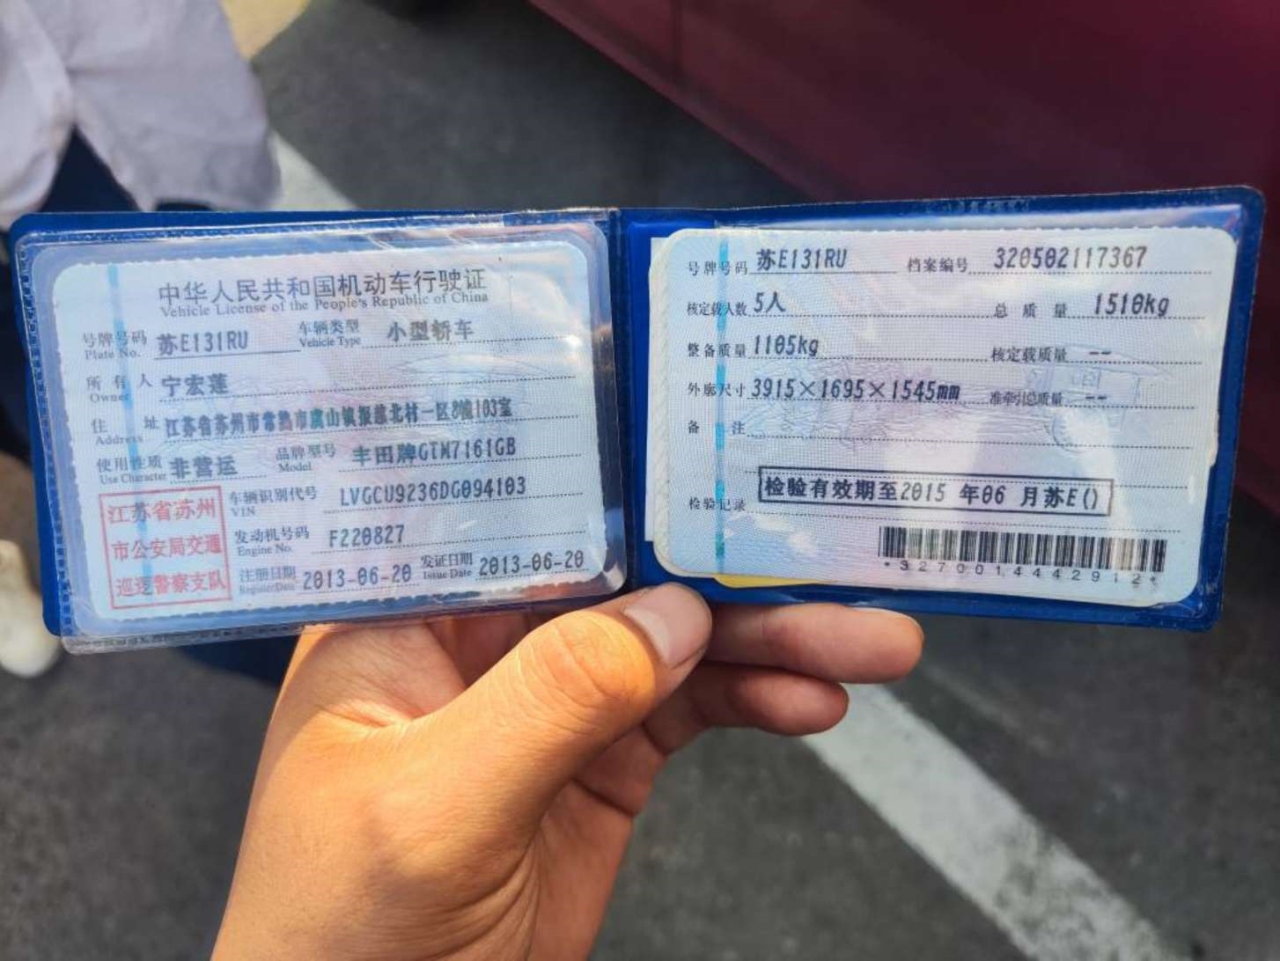 中华人民共和国机动车行驶证
Vehicle License of the People's Republic of China
号牌号码 苏E131RU 车辆类型 小型轿车
Plate No. Vehicle Type
所有人 宁宏莲
Owner
住址 江苏省苏州市常熟市虞山镇报慈北村一区8幢103室
Address
使用性质 非营运 品牌型号 丰田牌GTM7161GB
Use Character Model
江苏省苏州
市公安局交通
巡逻警察支队
车辆识别代号 LVGCU9236DG094103
VIN
发动机号码 F220827
Engine No.
注册日期 2013-06-20 发证日期 2013-06-20
Register Date Issue Date
号牌号码 苏E131RU 档案编号 320502117367
核定载人数 5人 总质量 1510kg
整备质量 1105kg 核定载质量 --
外廓尺寸 3915×1695×1545mm 准牵引总质量 --
备注
检验记录 检验有效期至2015 年06 月苏E()
*3270014442912*